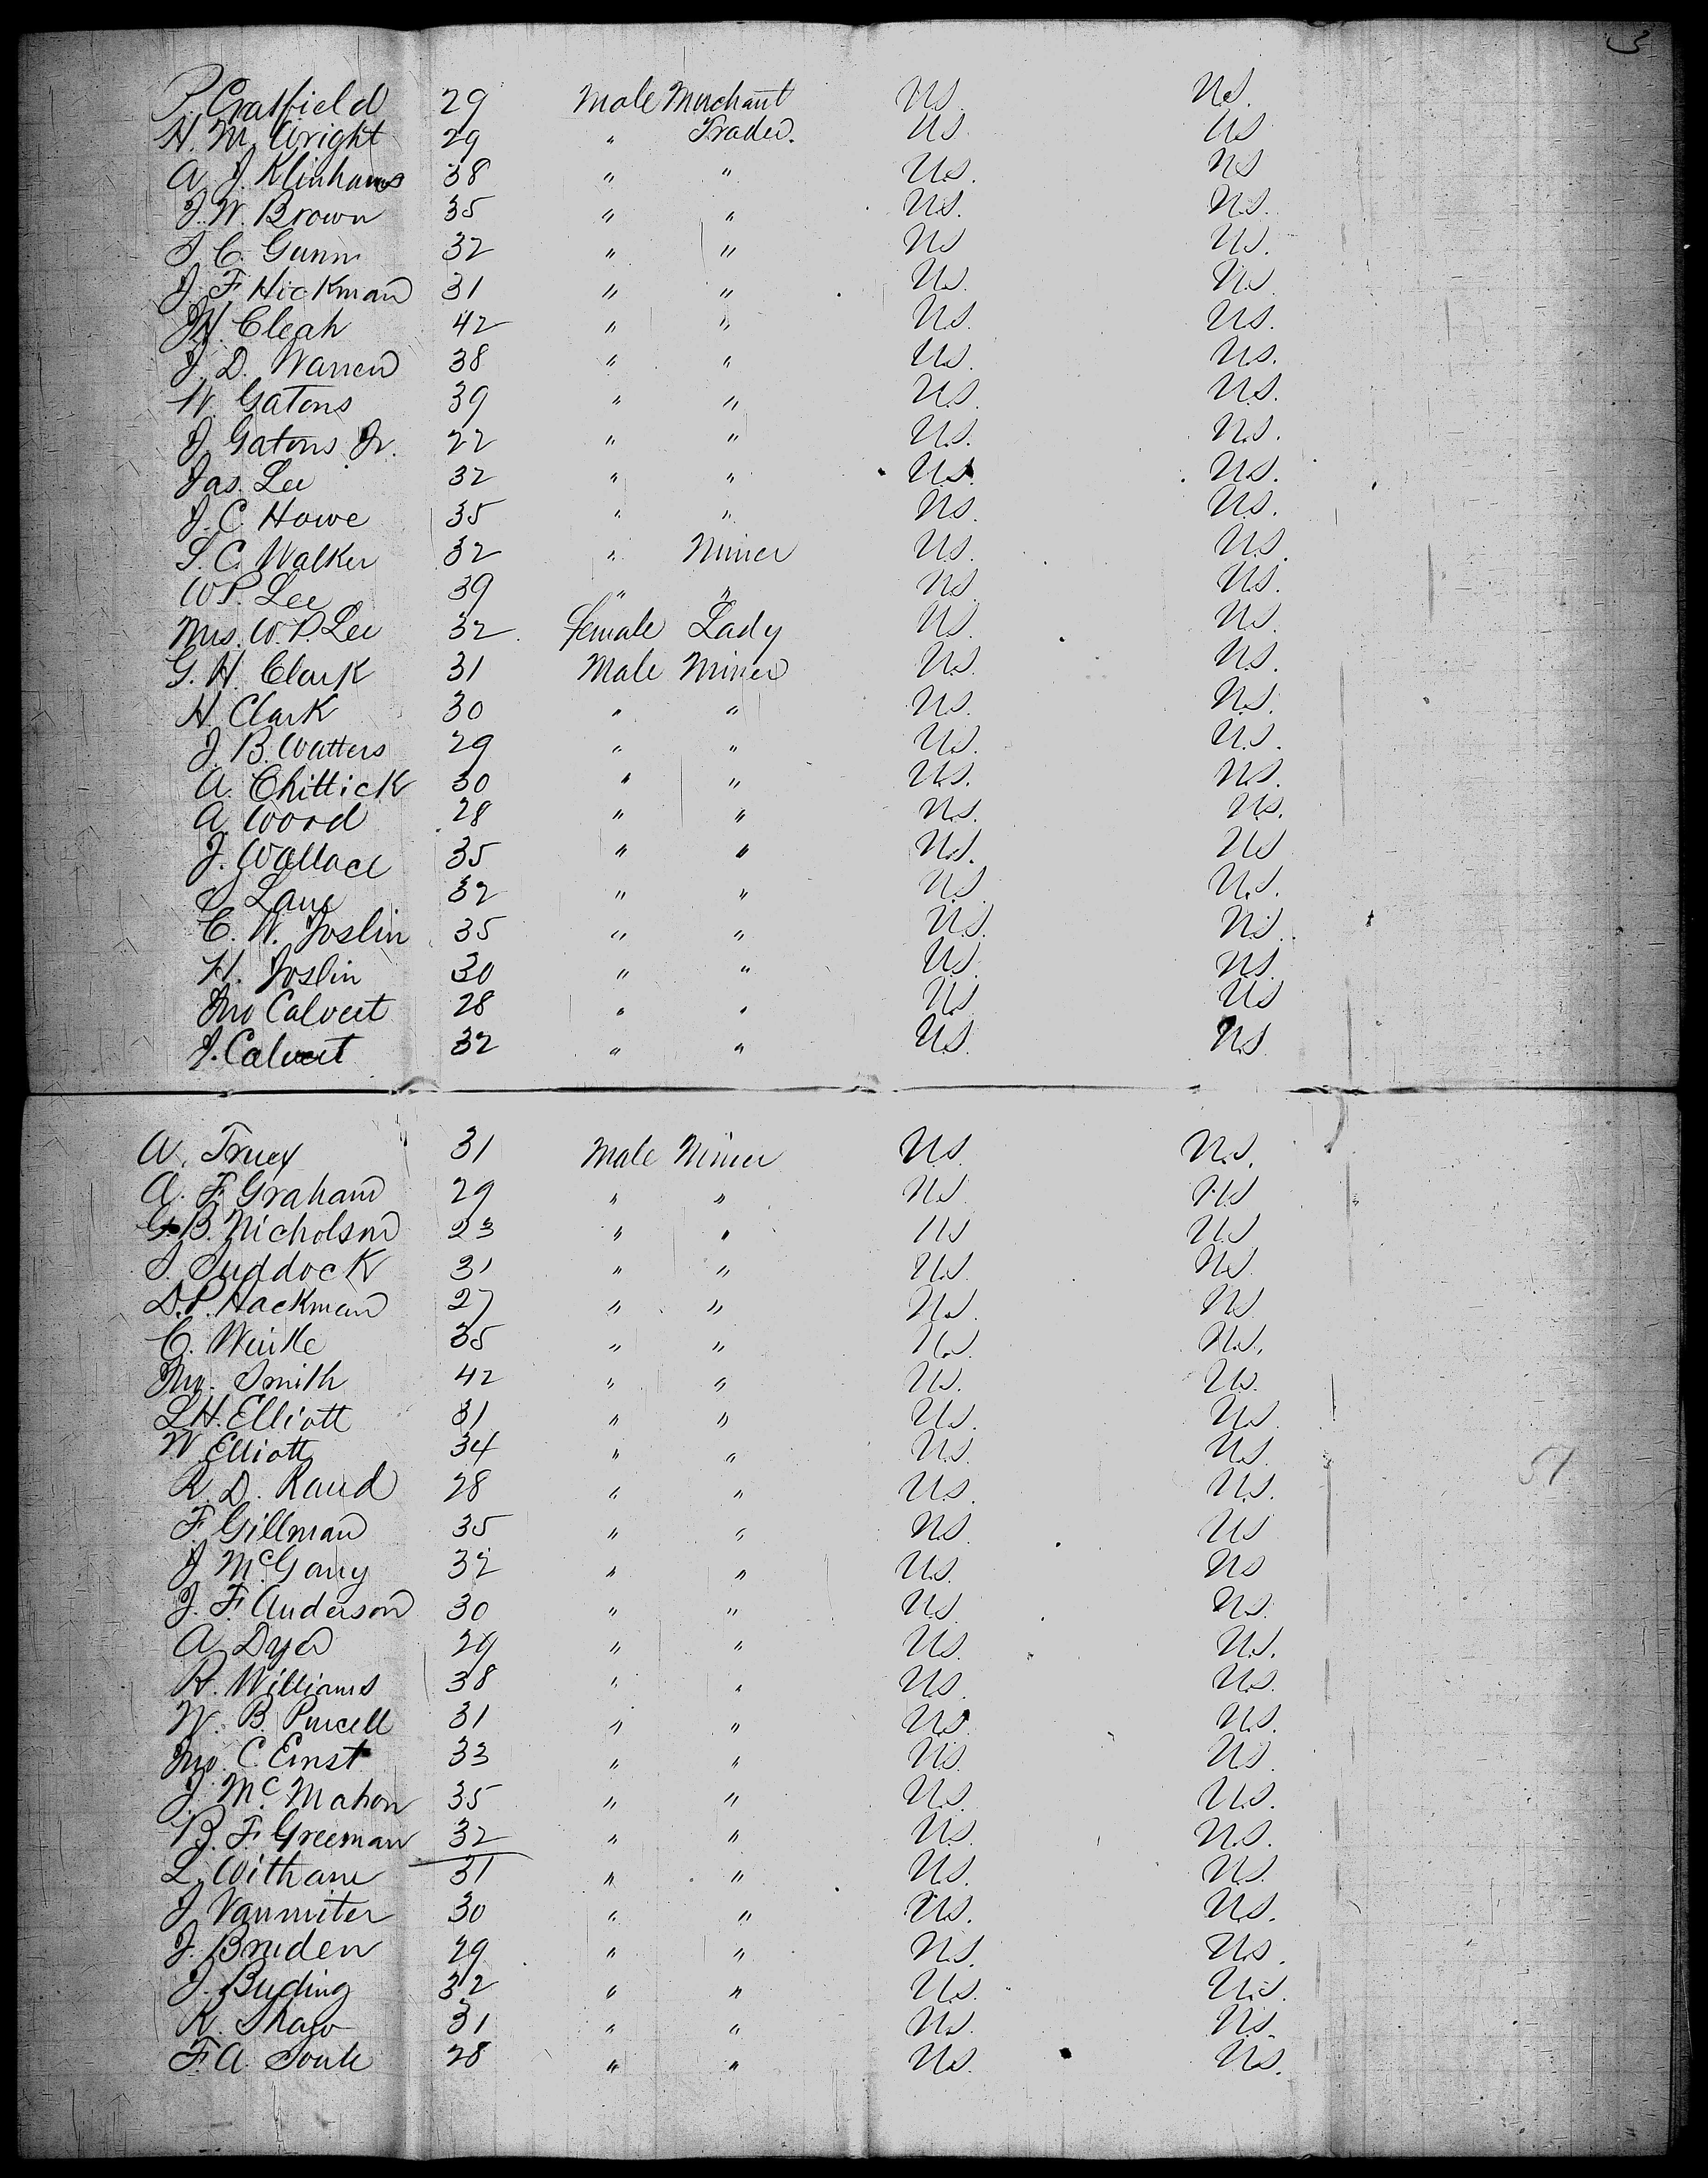 3
P. Gratfield 29 Male Merchant U.S. U.S.
H. M. Wright 29 " Trader. U.S. U.S
A. J. Klinhams 38 " " U.S. U.S
J. W. Brown 35 " " U.S. U.S.
S. C. Gunn 32 " " U.S U.S.
J. F. Hickman 31 " " U.S. U.S
J H. Cleah 42 " " U.S. U.S.
J. D. Warren 38 " " U.S. U.S.
W. Gatons 39 " " U.S. U.S.
J. Gatons Jr. 22 " " U.S. U.S.
Jas. Lee 32 " " U.S. U.S.
J. C. Howe 35 " " U.S. U.S.
S. C. Walker 32 " Miner U.S. U.S.
W P. Lee 39 " " U.S. U.S.
Mrs. W. P. Lee 32 female Lady U.S. U.S.
G. H. Clark 31 Male Miner U.S. U.S.
H. Clark 30 " " U.S. U.S.
J. B. Watters 29 " " U.S. U.S.
A. Chittick 30 " " U.S. U.S.
A. Word 28 " " U.S. U.S.
J. Wallace 35 " " U.S. U.S
S Lane 32 " " U.S. U.S.
C. W. Joslin 35 " " U.S. U.S.
H. Joslin 30 " " U.S U.S.
Jno Calvert 28 " " U.S U.S
J. Calvert 32 " " U.S. U.S
A. Truex 31 Male Miner U.S. U.S.
A. F. Graham 29 " " U.S U.S
G. B. Nicholson 23 " " U.S U.S
S. Suddock 31 " " U.S. U.S.
D. P. Hackman 27 " " U.S. U.S
C. Weikle 35 " " U.S. U.S.
Jno. Smith 42 " " U.S. U.S.
L H. Elliott 31 " " U.S. U.S.
W. Elliott 34 " " U.S. U.S.
R. D. Rand 28 " " U.S. U.S.
F. Gillman 35 " " U.S. U.S
J McGarry 32 " " U.S. U.S
J. F. Anderson 30 " " U.S. U.S.
A Dyer 29 " " U.S. U.S.
R. Williams 38 " " U.S. U.S.
W. B. Purcell 31 " " U.S. U.S.
Jno C. Ernst 33 " " U.S. U.S.
J. Mc Mahon 35 " " U.S. U.S.
B. F. Greeman 32 " " U.S. U.S.
L. Witham 31 " " U.S. U.S.
J Vanmiter 30 " " U.S. U.S.
J. Bruden 29 " " U.S. U.S.
J. Buding 32 " " U.S. U.S.
R. Shaw 31 " " U.S. U.S.
F. A. Soule 28 " " U.S. U.S.
51